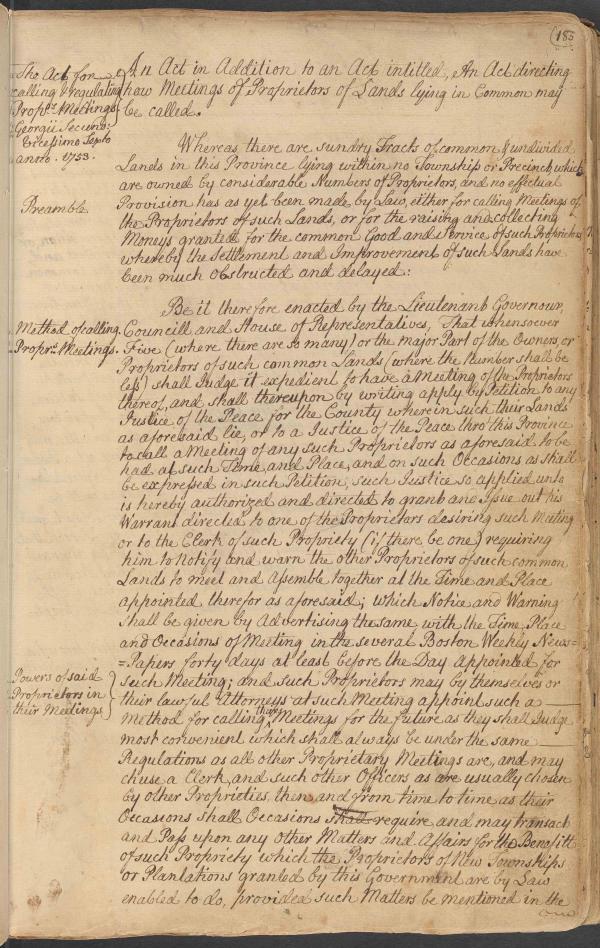 183
The Act for
calling & regulating
Propr.s Meetings
Georgii Secundi
Vicessimo Septo
anno. 1753.
An Act in Addition to an Act intitled, An Act directing
how Meetings of Proprietors of Lands lying in Common may
be called.
Whereas there are sundry Tracts of common & undivided
Lands in this Province lying within no Township or Precinct, which
are owned by considerable Numbers of Proprietors, and no effectual
Preamble
Provision has as yet been made by Law, either for calling Meetings of
the Proprietors of such Lands, or for the raising and collecting
Moneys granted for the common Good and Service of such Proprietors
whereby the Settlement and Improvement of such Lands have
been much obstructed and delayed:
Be it therefore enacted by the Lieutenant Governour,
Method of calling
Propr.s Meetings.
Councill and House of Representatives, That whensoever
Five (where there are so many) or the major Part of the Owners, or
Proprietors of such common Lands (where the Number shall be
less) shall Judge it expedient to have a Meeting of the Proprietors
thereof, and shall thereupon by writing apply by Petition to any
Justice of the Peace for the County wherein such their Lands
as aforesaid lie, or to a Justice of the Peace thro' this Province
to call a Meeting of any such Proprietors as aforesaid to be
had at such Time, and Place, and on such Occasions as shall
be expressed in such Petition, such Justice so applied unto
is hereby authorized and directed to grant and Issue out his
Warrant directed to one of the Proprietors desiring such Meeting
or to the Clerk of such Propriety (if there be one) requiring
him to Notify and warn the other Proprietors of such common
Lands to meet and Assemble together at the Time and Place
appointed therefor as aforesaid; which Notice and Warning
shall be given by Advertising the same with the Time, Place
and Occasions of Meeting in the several Boston Weekly News=
=Papers forty days at least before the Day appointed for
Powers of said
Proprietors in
their Meetings
such Meeting; and such Proprietors may by themselves or
their lawful Attorneys at such Meeting appoint such a
Method for calling their Meetings for the future as they shall Judge
most convenient which shall always be under the same
Regulations as all other Proprietary Meetings are, and may
chuse a Clerk, and such other Officers as are usually chosen
by other Proprieties, then and from time to time as their
Occasions shall Occasions shall require and may transact
and Pass upon any other Matters and Affairs for the Benefitt
of such Propriety which the Proprietors of New Townships
or Plantations granted by this Government are by Law
enabled to do, provided such Matters be mentioned in the